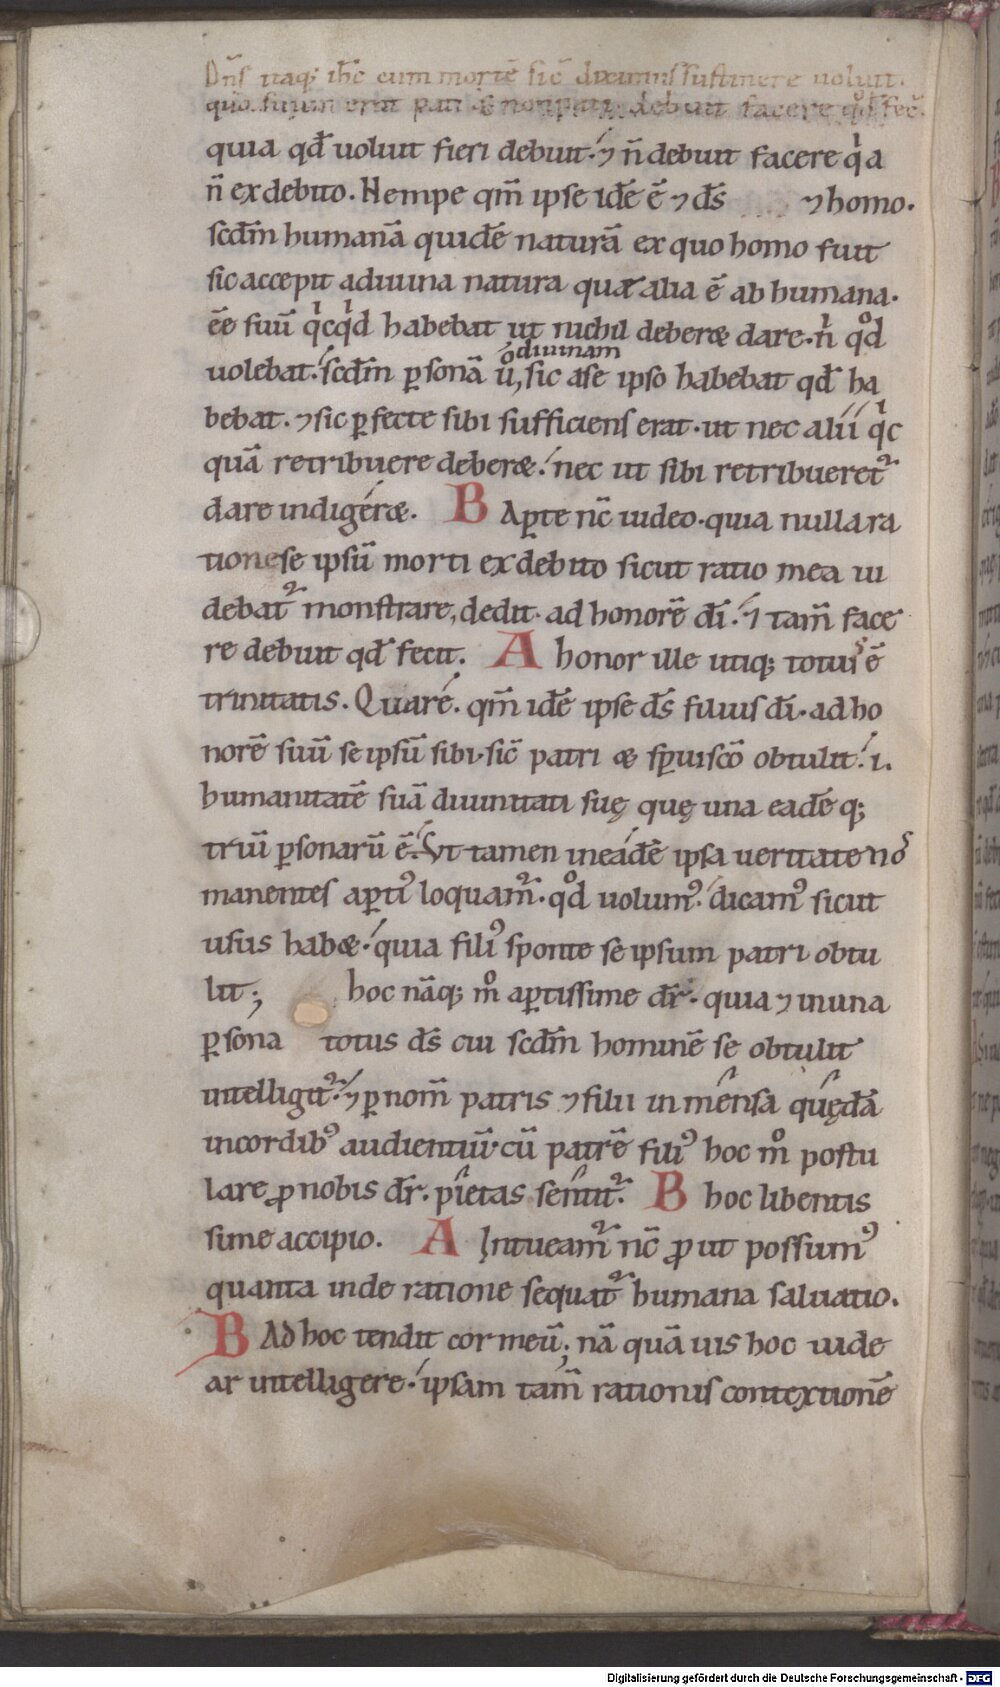 Dn̄s itaq; ih̄c cum mortē sic̄ diximus sustinere uoluit.
quia qd̄ uoluit fieri debuit. ⁊ n̄ debuit facere qͥa
n̄ ex debito. Nempe qm̄ ipse idē ē ⁊ ds̄ ⁊ homo.
scdm̄ humanā quidē naturā ex quo homo fuit
sic accepit a diuina natura quæ alia ē ab humana.
ēe suū qͥcqͥd habebat ut nichil deberæ dare. nͥ qͦd
diuinam
uolebat. scdm̄ p̲sonā ū, sic a se ipso habebat qd̄ ha
bebat. ⁊ sic p̲fecte sibi sufficiens erat. ut nec alii qͥc
quā retribuere deberæ. nec ut sibi retribueret᷑
dare indigeræ. B Ap̲te nc̄ uideo. quia nulla ra
tione se ipsū morti ex debito sicut ratio mea ui
debat᷑ monstrare, dedit ad honorē dī. ⁊ tam̄ face
re debuit qd̄ fecit. A honor ille utiq; totius ē
trinitatis. Quare. qm̄ idē ipse ds̄ filius dī. ad ho
norē suū se ipsū sibi. sic̄ patri æ sp̄uiscō obtulit. .i.
humanitatē suā diuinitati suę quę una eadē q;
triū p̲sonarū ē. Vt tamen in eadē ipsa ueritate
manentes ap̲tiꝰ loquam᷑. qͦd uolumꝰ. dicamꝰ sicut
usus habæ. quia filiꝰ sponte se ipsum patri obtu
lit; hoc nāq; mͦ ap̲tissime dr̄. quia ⁊ in una
p̲sona totus ds̄ cui scdm̄ hominē se obtulit
intelligit᷑. ⁊ p̲ nom̄ patris ⁊ filii inmensa quędā
in cordibꝰ audientiū. cū patrē filiꝰ hoc mͦ postu
lare ꝓ nobis dr̄. pietas sentit᷑. B hoc libentis
sime accipio. A Intueam᷑ nc̄ ꝓut possumꝰ
quanta inde ratione sequat᷑ humana saluatio.
B Ad hoc tendit cor meū; nā quā uis hoc uide
ar intelligere. ipsam tam̄ rationis contextionē
Digitalisierung gefördert durch die Deutsche Forschungsgemeinschaft - DFG